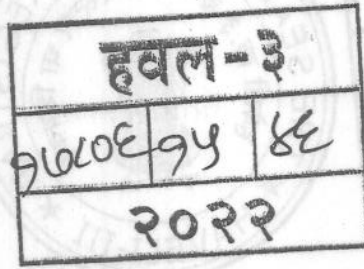 हवल-३
१७८०६ १५ ४६
२०२२